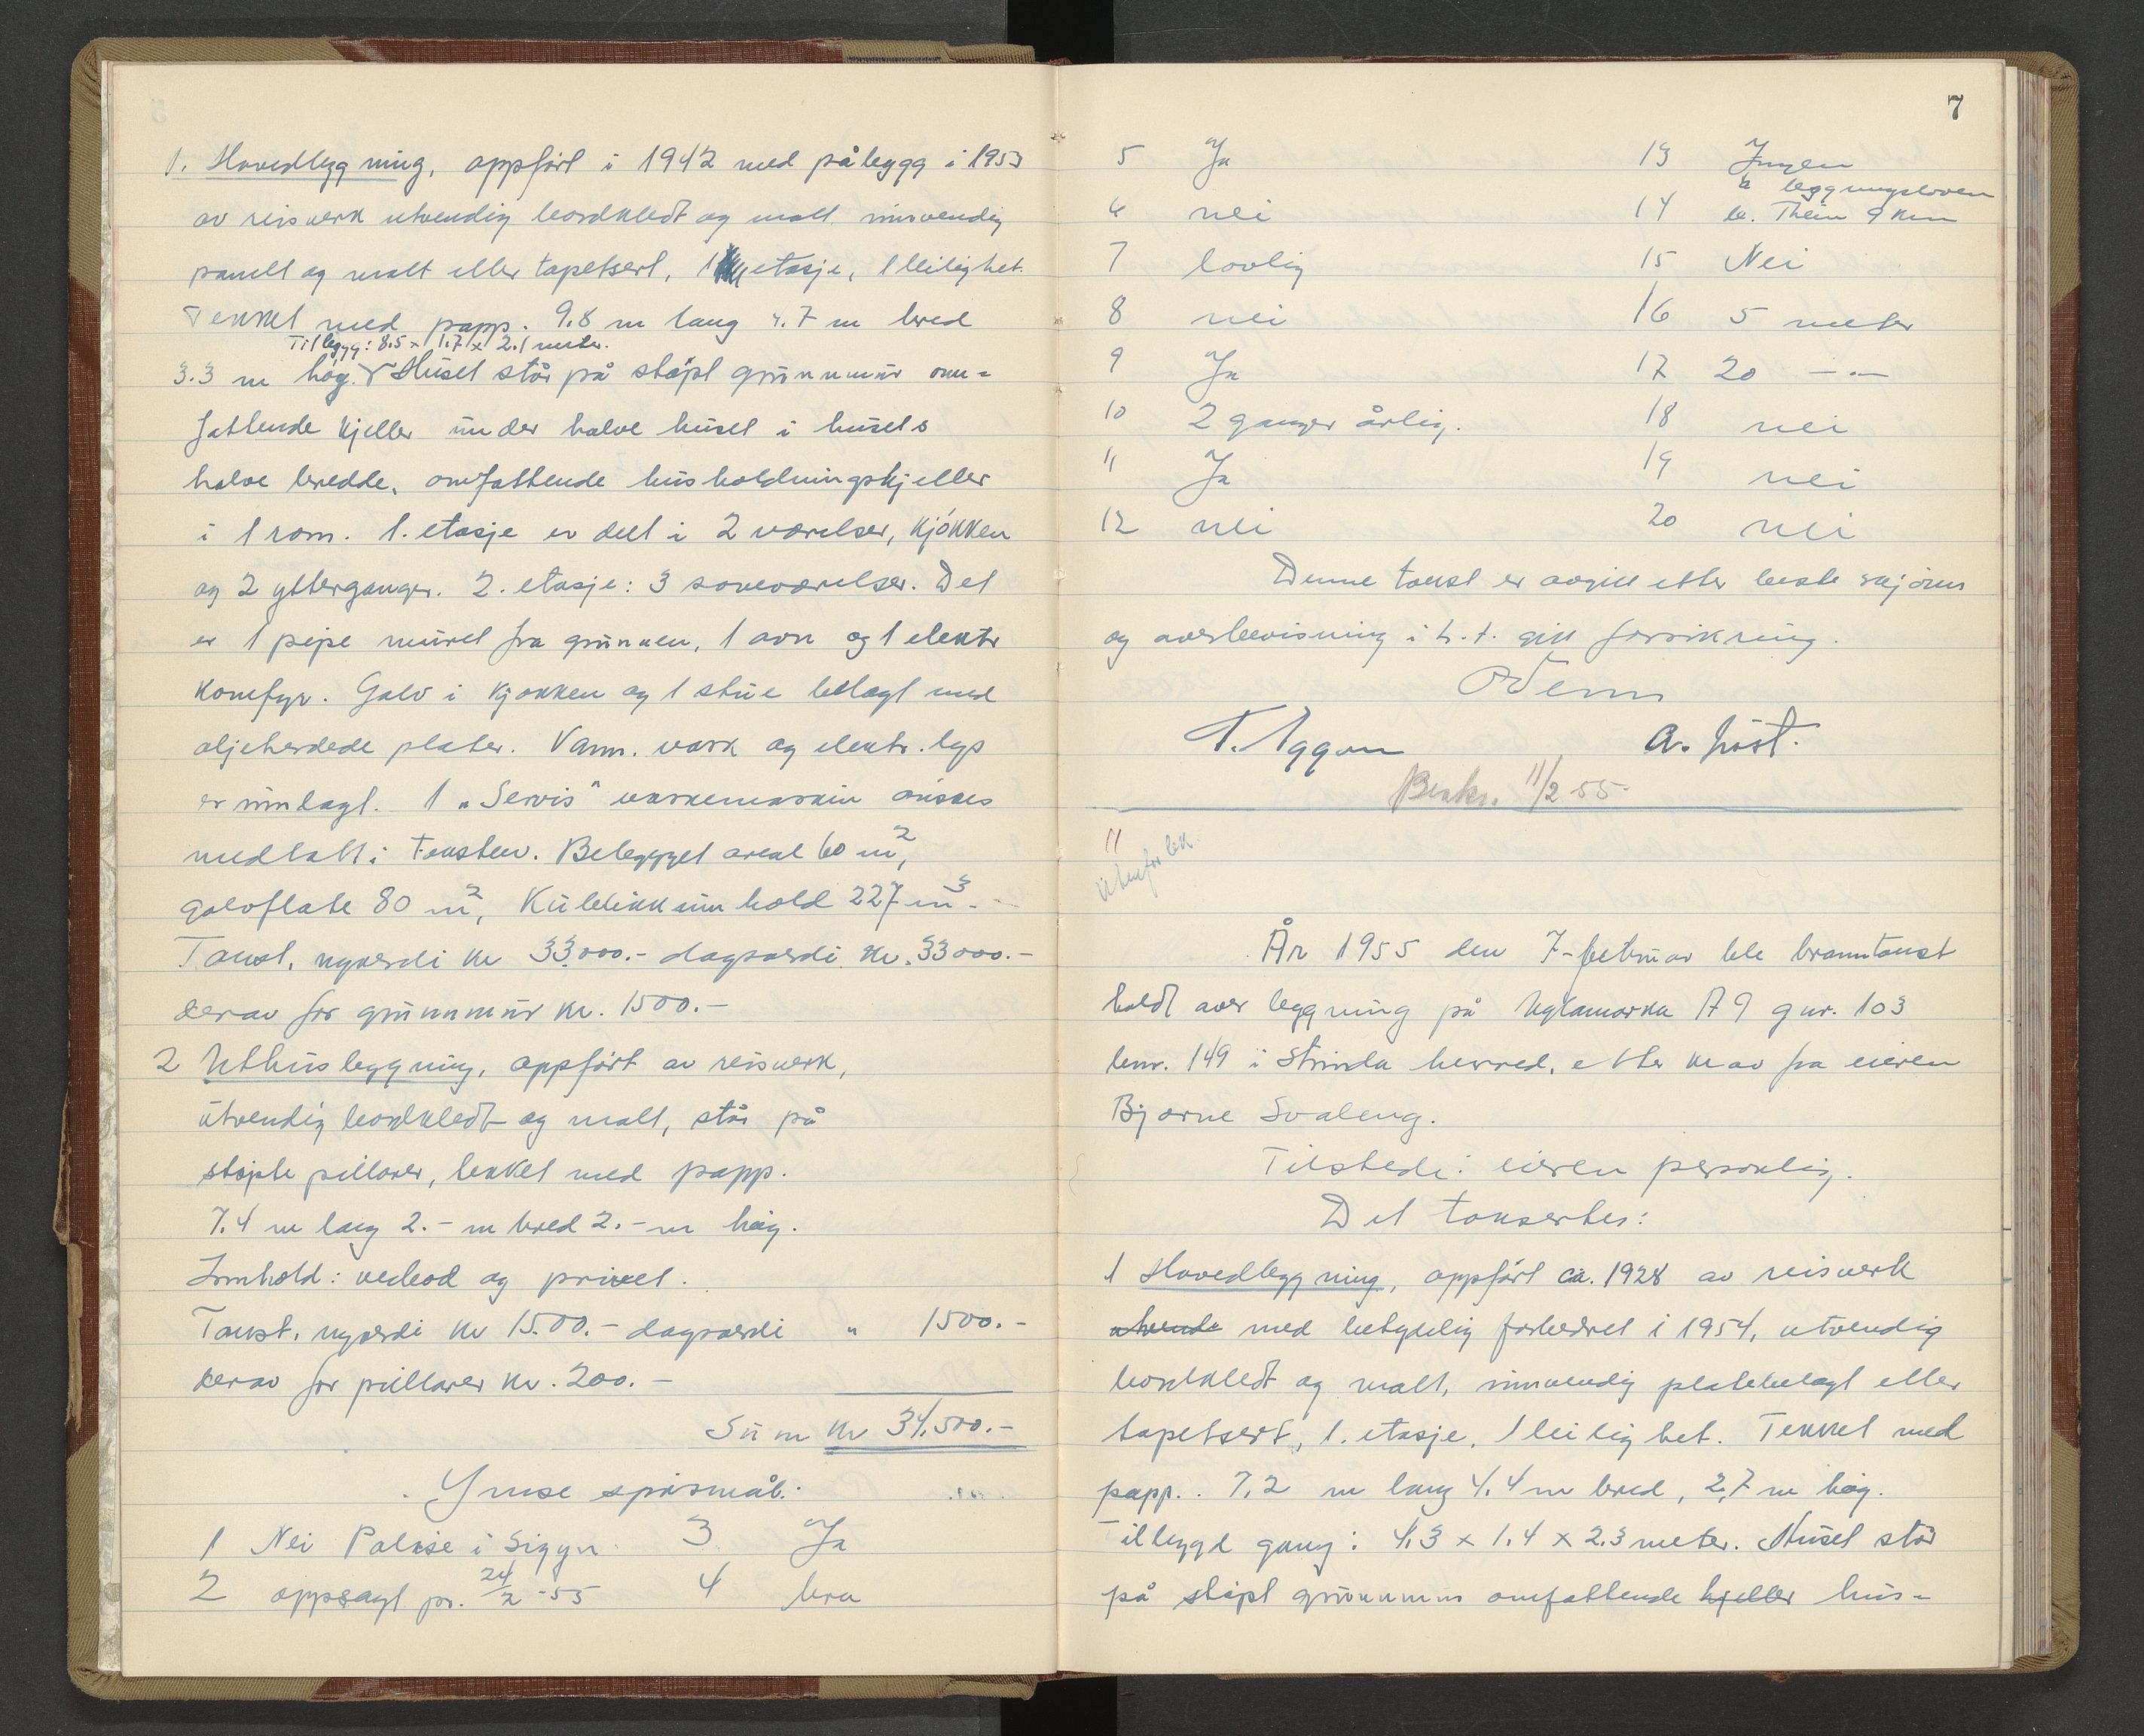 1. Hovedbygning, oppført i 1942 med påbygg i 1953
av reisverk utvendig bordkledt og malt innvendig
panelt og malt eller tapetsert, 1 etasje, 1 leilighet.
Tekket med papp. 9.8 m lang 4.7 m bred
Tilbygg: 8.5 x 1.7 x 2.1 meter.
3.3 m høg. Huset står på støpt grunnmur om=
fattende kjeller under halve huset i husets
halve bredde, omfattende husholdningskjeller
i 1 rom. 1. etasje er delt i 2 værelser, kjøkken
og 2 ytterganger. 2. etasje: 3 soveværelser. Det
er 1 pipe muret fra grunnen, 1 ovn og 1 elektr
komfyr. Golv i kjøkken og 1 stue belagt med
oljeherdede plater. Vann. vask og elektr. lys
er innlagt. 1 „Servis" vaskemaskin ønskes
medtatt i taksten. Bebygget areal 60 m2,
golvflate 80 m2, Kubikkinnhold 227 m3.
Takst, nyverdi kr 33000.- dagsverdi kr. 33000.-
derav for grunnmur kr. 1500.-
2 Uthusbygning, oppført av reisverk,
utvendig bordkledt og malt, står på
støpte pillarer, tekket med papp.
7.4 m lang 2.- m bred 2.- m høg.
Innhold: vedbod og privet.
Takst, nyverdi kr 1500.- dagsverdi " 1500.-
derav for pillarer kr. 200.-
Sum kr 34.500.-
Ymse spørsmål:
1 Nei Polise i Sigyn 3 Ja
2 oppsagt pr. 24/2-55 4 bra
7
5 Ja 13 Ingen
bygningsloven
6 nei 14 9 km
7 lovlig 15 Nei
8 nei 16 5 meter
9 Ja 17 20 -"-
10 2 ganger årlig. 18 nei
11 Ja 19 nei
12 nei 20 nei
Denne takst er avgitt etter beste skjønn
og overbevisning i h.t. gitt forsikring.
A. Høst.
Beskr. 11/2 55
11
Utenfor bek.
År 1955 den 7-februar ble branntakst
holdt over bygning på Uglamarka A 9 gnr. 103
bnr. 149 i Strinda herred, etter krav fra eieren
Bjarne Svaleng.
Tilstede: eieren personlig.
Det taksertes:
1 Hovedbygning, oppført ca. 1928 av reisverk
utvendi med betydelig forbedret i 1954, utvendig
bordkledt og malt, innvendig platebelagt eller
tapetsert, 1. etasje, 1 leilighet. Tekket med
papp. 7,2 m lang 4,4 m bred, 2,7 m høg.
Tilbygd gang: 4.3 x 1.4 x 2.3 meter. Huset står
på støpt grunnmur omfattende kjeller hus=